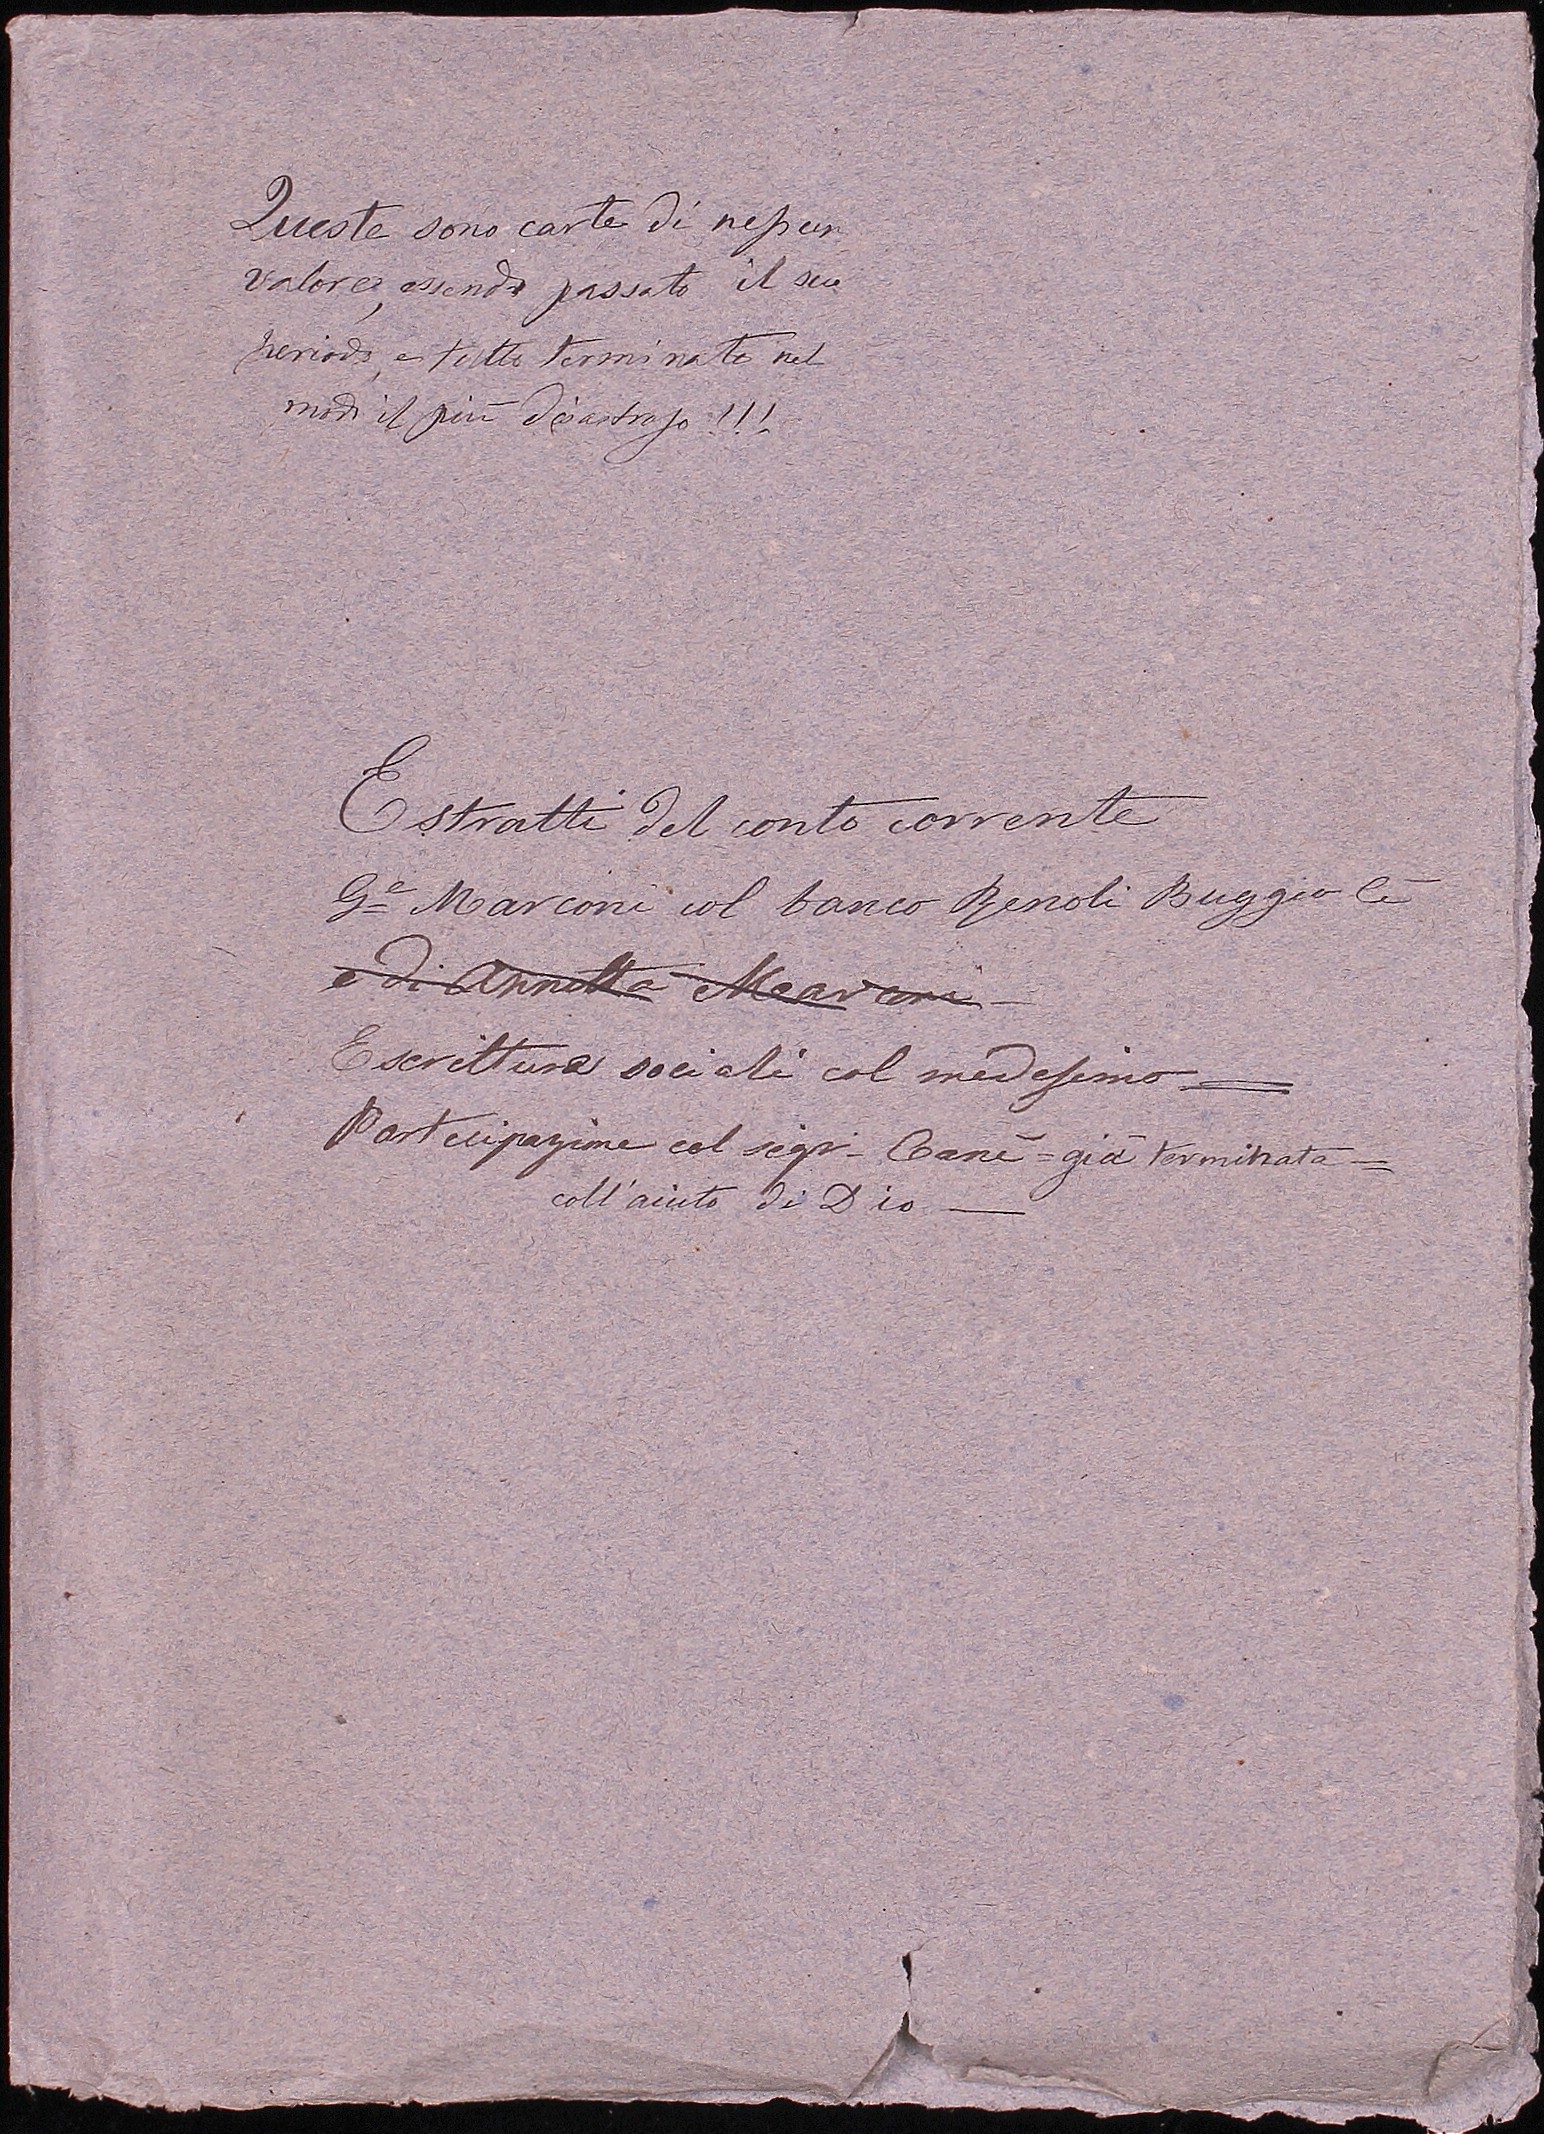 Queste sono carte di nessun
valore, essendo passato il suo
periodo, e tutto terminato nel
modo il più disastroso !!!
Estratti del conto corrente
Ge Marconi col banco Renoli Buggio Cē
e di Annetta Marconi —
E scritture sociali col medesimo —
Partecipazione col sigr. Canè = già terminata =
coll'aiuto di Dio —